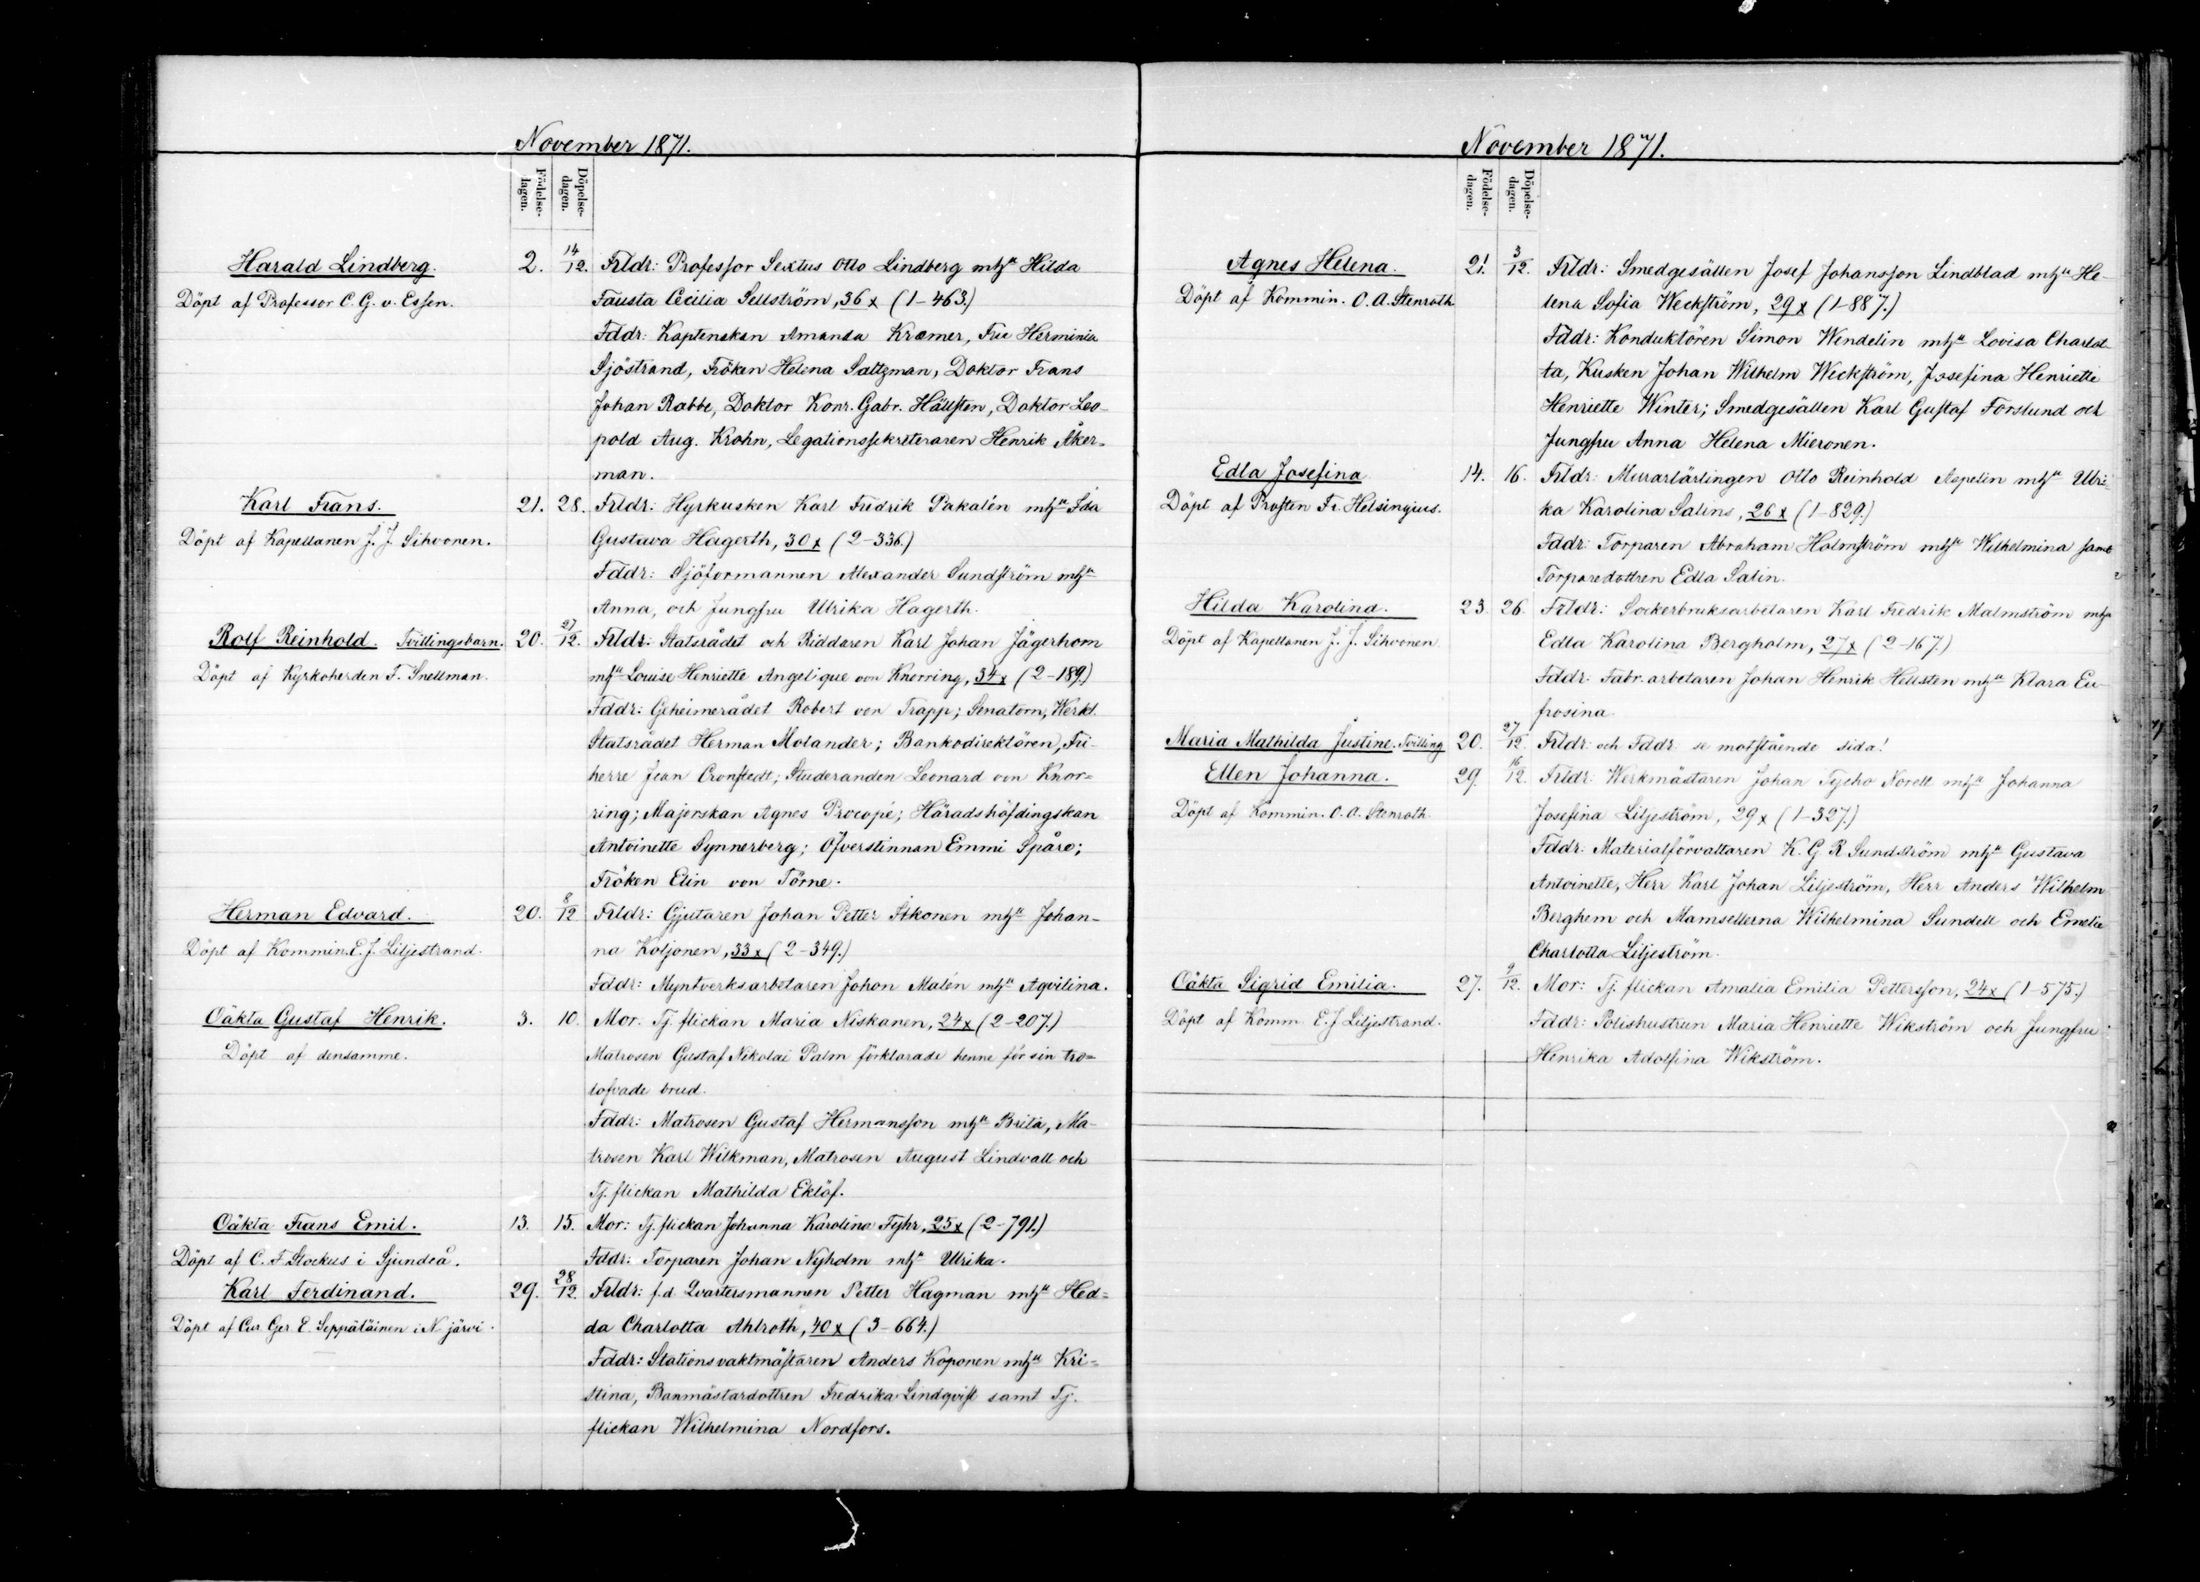 November 1871.
Födelse-dagen.
Döpelse-dagen.
Harald Lindberg. 2. 14/12. Frldr: Professor Sextus Otto Lindberg mhu Hilda
Döpt af Professor C. G. v. Essen. Fausta Cecilia Sellström, 36 x (1-463.)
Fddr: Kaptenskan Amanda Kræmer, Fru Herminia
Sjöstrand, Fröken Helena Saltzman, Doktor Frans
Johan Rabbe, Doktor Konr. Gabr. Hällsten, Doktor Leo-
pold Aug. Krohn, Legationssekreteraren Henrik Åker-
man.
Karl Frans. 21. 28. Frldr: Hyrkusken Karl Fredrik Pakalén mhu Ida
Döpt af Kapellanen J. J. Sihvonen. Gustava Hagerth, 30 x (2-336.)
Fddr: Sjöformannen Alexander Sundström mhu
Anna, och Jungfru Ulrika Hagerth.
Rolf Reinhold. Tvillingsbarn. 20. 27/12. Frldr: Statsrådet och Riddaren Karl Johan Jägerhorn
Döpt af Kyrkoherden F. Snellman. mhu Louise Henriette Angelique von Knorring, 34 x (2-189.)
Fddr: Geheimerådet Robert von Trapp; Senatorn, Werkl.
Statsrådet Herman Molander; Bankodirektören, Fri-
herre Jean Cronstedt; Studeranden Leonard von Knor-
ring; Majorskan Agnes Procopé; Häradshöfdingskan
Antoinette Synnerberg; Öfverstinnan Emmi Spåre;
Fröken Elin von Törne.
Herman Edvard. 20. 8/12 Frldr: Gjutaren Johan Petter Itkonen mhu Johan-
Döpt af Kommin. E. J. Liljestrand. na Koljonen, 33 x (2-349.)
Fddr: Myntverksarbetaren Johan Malén mhu Aqvilina.
Oäkta Gustaf Henrik. 3. 10. Mor. Tj. flickan Maria Niskanen, 24 x (2-207.)
Döpt af densamme. Matrosen Gustaf Nikolai Palm förklarade henne för sin tro-
lofvade brud.
Fddr: Matrosen Gustaf Hermansson mhu Brita, Ma-
trosen Karl Wilkman, Matrosen August Lindvall och
Tj. flickan Mathilda Eklöf.
Oäkta Frans Emil. 13. 15. Mor: Tj. flickan Johanna Karolina Fyhr, 25 x (2-791.)
Döpt af C. F. Stockus i Sjundeå. Fddr: Torparen Johan Nyholm mhu Ulrika.
Karl Ferdinand. 29. 28/12. Frldr: f.d. Qvartersmannen Petter Hagman mhu Hed-
Döpt af Cur. Ger. E. Seppäläinen i N. järvi. da Charlotta Ahlroth, 40 x (3-664.)
Fddr: Stationsvaktmästaren Anders Koponen mhu Kri-
stina, Banmästardottren Fredrika Lindqvist samt Tj.
flickan Wilhelmina Nordfors.
November 1871.
Födelse-dagen.
Döpelse-dagen.
Agnes Helena. 21. 3/12. Frldr: Smedgesällen Josef Johansson Lindblad mhu He-
Döpt af Kommin. O. A. Stenroth lena Sofia Weckström, 29 x (1-887.)
Fddr: Konduktören Simon Wendelin mhu Lovisa Charlot-
ta, Kusken Johan Wilhelm Weckström, Josefina Henriette
Henriette Winter; Smedgesällen Karl Gustaf Forslund och
Jungfru Anna Helena Mieronen.
Edla Josefina 14. 16. Frldr: Murarlärlingen Otto Reinhold Aspelin mhu Ulri-
Döpt af Prosten Fr. Helsingius. ka Karolina Salins, 26 x (1-829.)
Fddr: Torparen Abraham Holmström mhu Wilhelmina samt
Torparedottren Edla Salin.
Hilda Karolina. 23. 26. Frldr: Sockerbruksarbetaren Karl Fredrik Malmström mhu
Döpt af Kapellanen J. J. Sihvonen Edla Karolina Bergholm, 27 x (2-167.)
Fddr: Fabr. arbetaren Johan Henrik Hellsten mhu Klara Eu-
frosina.
Maria Mathilda Justine. Tvilling 20. 27/12. Frldr: och Fddr: se motstående sida!
Ellen Johanna. 29. 16/12. Frldr: Werkmästaren Johan Tycho Norell mhu Johanna
Döpt af Kommin. O. A. Stenroth. Josefina Liljeström, 29 x (1-327.)
Fddr: Materialförvaltaren K. G. R. Sundström mhu Gustava
Antoinette, Herr Karl Johan Liljeström, Herr Anders Wilhelm
Berghem och Mamsellerna Wilhelmina Sundell och Emelie
Charlotta Liljeström.
Oäkta Sigrid Emilia. 27. 9/12. Mor: Tj. flickan Amalia Emilia Pettersson, 24 x (1-575.)
Döpt af Komm. E. J. Liljestrand. Fddr: Polishustrun Maria Henriette Wikström och Jungfru
Henrika Adolfina Wikström.